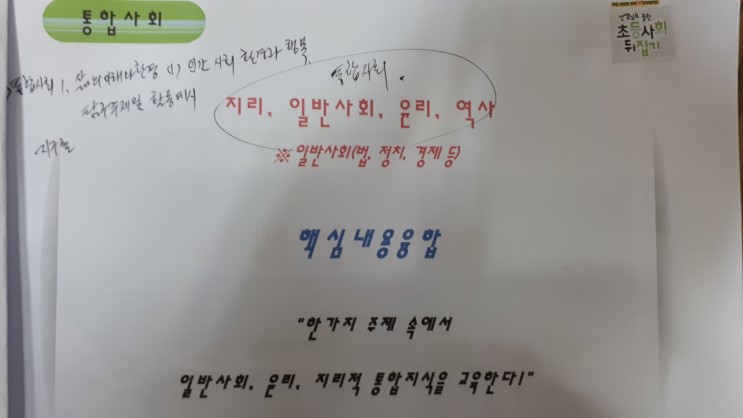 통합사회
선생님도 놀란
초등사회
뒤집기
통합사회 1. 삶의 이해와 환경 (1) 인간 사회 환경과 행복
통합사회.
탐구주제및 활동예시
지리, 일반사회, 윤리, 역사
※일반사회(법, 정치, 경제 등)
핵심내용융합
"한가지 주제 속에서
일반사회, 윤리, 지리적 통합지식을 교육한다!"